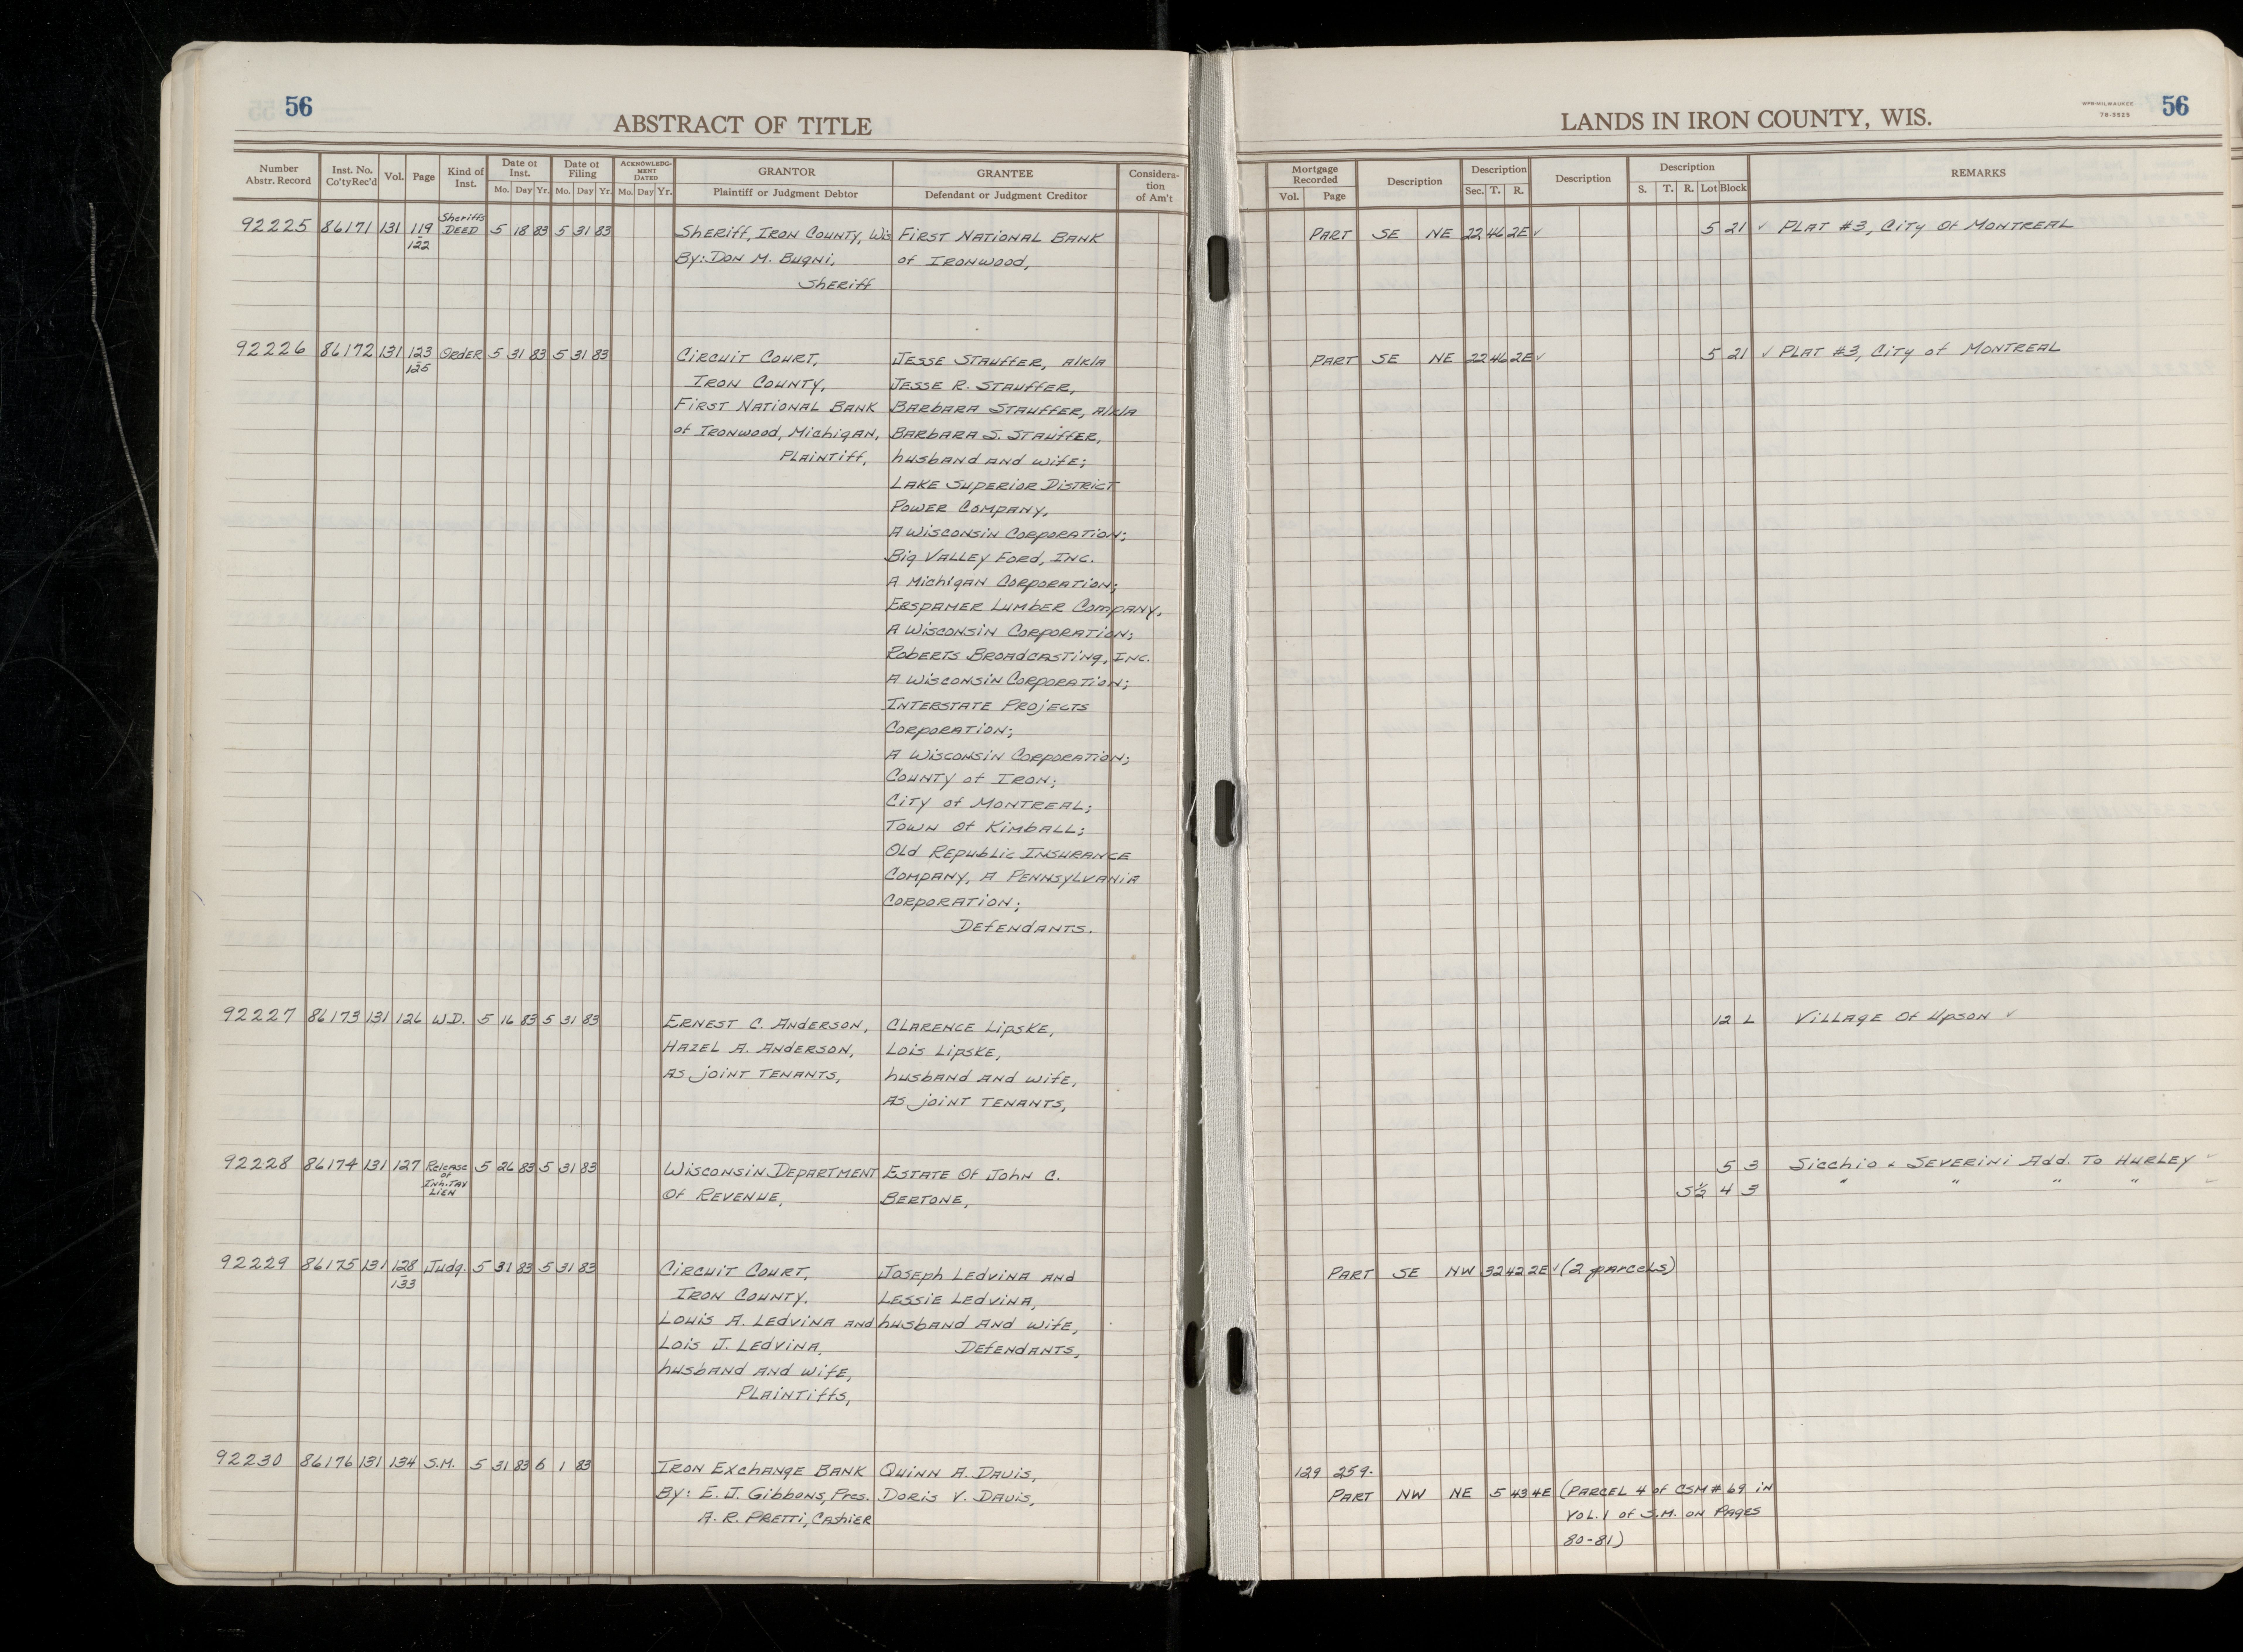 56
ABSTRACT OF TITLE
Number Abstr. Record | Inst. No. Co'ty Rec'd | Vol. | Page | Kind of Inst. | Date of Inst. Mo. Day Yr. | Date of Filing Mo. Day Yr. | ACKNOWLEDGMENT DATED Mo. Day Yr. | GRANTOR Plaintiff or Judgment Debtor | GRANTEE Defendant or Judgment Creditor | Consideration of Am't
92225 86171 131 119-122 Sheriffs DEED 5 18 83 5 31 83 Sheriff, Iron County, Wis First National Bank
By: Don M. Bugni, of Ironwood,
Sheriff
92226 86172 131 123-125 Order 5 31 83 5 31 83 Circuit Court, Jesse Stauffer, a/k/a
Iron County, Jesse R. Stauffer,
First National Bank Barbara Stauffer, a/k/a
of Ironwood, Michigan, Barbara S. Stauffer,
Plaintiff, husband and wife;
Lake Superior District
Power Company,
A Wisconsin Corporation;
Big Valley Ford, Inc.
A Michigan Corporation;
Erspamer Lumber Company,
A Wisconsin Corporation;
Roberts Broadcasting, Inc.
A Wisconsin Corporation;
Interstate Projects
Corporation;
A Wisconsin Corporation;
County of Iron;
City of Montreal;
Town of Kimball;
Old Republic Insurance
Company, A Pennsylvania
Corporation;
Defendants.
92227 86173 131 126 W.D. 5 16 83 5 31 83 Ernest C. Anderson, Clarence Lipske,
Hazel A. Anderson, Lois Lipske,
As joint tenants, husband and wife,
As joint tenants,
92228 86174 131 127 Release of Inh. Tax Lien 5 26 83 5 31 83 Wisconsin Department Estate of John C.
of Revenue, Bertone,
92229 86175 131 128-133 Judg. 5 31 83 5 31 83 Circuit Court, Joseph Ledvina and
Iron County. Lessie Ledvina,
Louis A. Ledvina and husband and wife,
Lois J. Ledvina, Defendants,
husband and wife,
Plaintiffs,
92230 86176 131 134 S.M. 5 31 83 6 1 83 Iron Exchange Bank Quinn A. Davis,
By: E. J. Gibbons, Pres. Doris V. Davis,
A. R. Pretti, Cashier
LANDS IN IRON COUNTY, WIS.
WPG-MILWAUKEE
78-3525
56
Mortgage Recorded Vol. Page | Description | Description Sec. T. R. | Description | Description S. T. R. Lot Block | REMARKS
Part SE NE 22 46 2E ✓ 5 21 ✓ Plat #3, City of Montreal
Part SE NE 22 46 2E ✓ 5 21 ✓ Plat #3, City of Montreal
12 L Village of Upson ✓
5 3 Sicchio & Severini Add. to Hurley ✓
S½ 4 3 " " " " ✓
Part SE NW 32 42 2E ✓ (2 parcels)
129 259.
Part NW NE 5 43 4E (Parcel 4 of CSM # 69 in
Vol. 1 of S.M. on Pages
80-81)